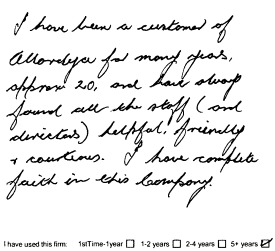 I have been a customer of
Allardyce for many years,
approx 20, and have always
found all the staff (and
directors) helpful, friendly
+ courteous. I have complete
faith in this Company.
I have used this firm: 1stTime-1year ☐ 1-2 years ☐ 2-4 years ☐ 5+ years ☑